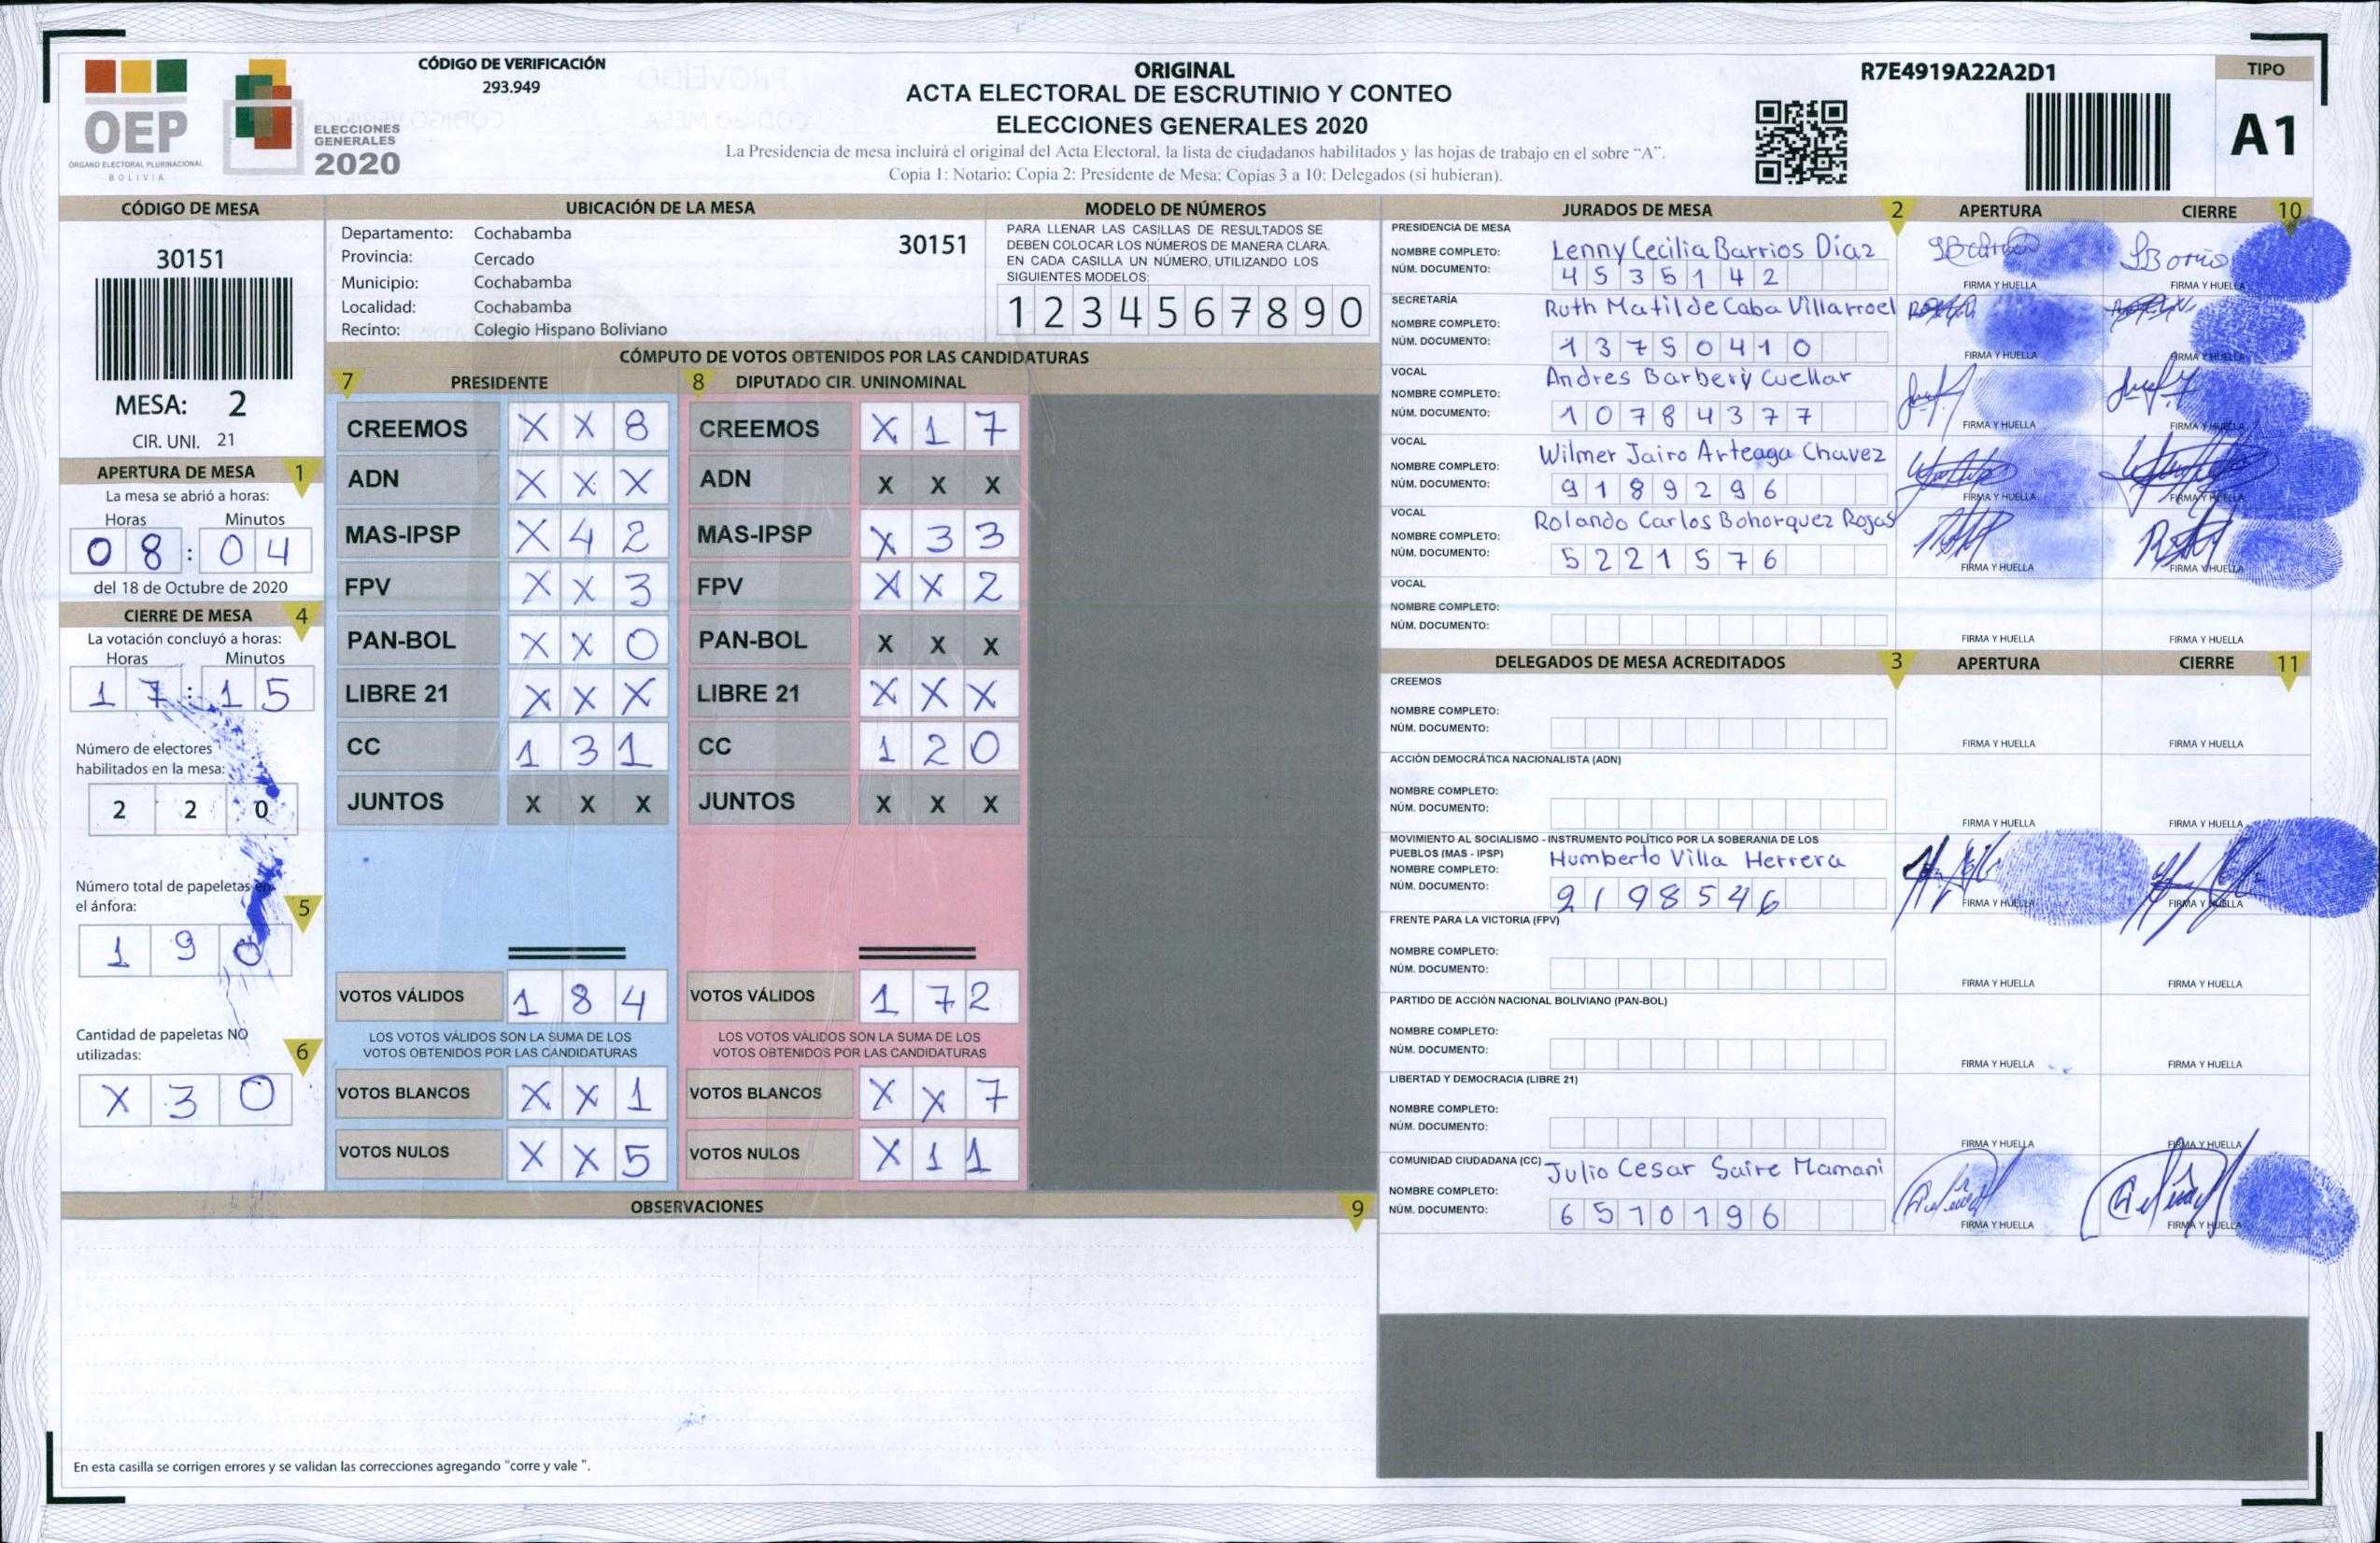 OEP
ÓRGANO ELECTORAL PLURINACIONAL
BOLIVIA
ELECCIONES
GENERALES
2020
CÓDIGO DE VERIFICACIÓN
293.949
ORIGINAL
ACTA ELECTORAL DE ESCRUTINIO Y CONTEO
ELECCIONES GENERALES 2020
La Presidencia de mesa incluirá el original del Acta Electoral, la lista de ciudadanos habilitados y las hojas de trabajo en el sobre "A".
Copia 1: Notario; Copia 2: Presidente de Mesa; Copias 3 a 10: Delegados (si hubieran).
R7E4919A22A2D1
TIPO
A1
CÓDIGO DE MESA
30151
MESA: 2
CIR. UNI. 21
APERTURA DE MESA 1
La mesa se abrió a horas:
Horas Minutos
08:04
del 18 de Octubre de 2020
CIERRE DE MESA 4
La votación concluyó a horas:
Horas Minutos
17:15
Número de electores
habilitados en la mesa:
2 2 0
Número total de papeletas en
el ánfora: 5
1 9 0
Cantidad de papeletas NO
utilizadas: 6
X 3 0
UBICACIÓN DE LA MESA
Departamento: Cochabamba 30151
Provincia: Cercado
Municipio: Cochabamba
Localidad: Cochabamba
Recinto: Colegio Hispano Boliviano
MODELO DE NÚMEROS
PARA LLENAR LAS CASILLAS DE RESULTADOS SE
DEBEN COLOCAR LOS NÚMEROS DE MANERA CLARA.
EN CADA CASILLA UN NÚMERO, UTILIZANDO LOS
SIGUIENTES MODELOS:
1 2 3 4 5 6 7 8 9 0
CÓMPUTO DE VOTOS OBTENIDOS POR LAS CANDIDATURAS
7 PRESIDENTE 8 DIPUTADO CIR. UNINOMINAL
CREEMOS X X 8 CREEMOS X 1 7
ADN X X X ADN X X X
MAS-IPSP X 4 2 MAS-IPSP X 3 3
FPV X X 3 FPV X X 2
PAN-BOL X X 0 PAN-BOL X X X
LIBRE 21 X X X LIBRE 21 X X X
CC 1 3 1 CC 1 2 0
JUNTOS X X X JUNTOS X X X
VOTOS VÁLIDOS 1 8 4 VOTOS VÁLIDOS 1 7 2
LOS VOTOS VÁLIDOS SON LA SUMA DE LOS LOS VOTOS VÁLIDOS SON LA SUMA DE LOS
VOTOS OBTENIDOS POR LAS CANDIDATURAS VOTOS OBTENIDOS POR LAS CANDIDATURAS
VOTOS BLANCOS X X 1 VOTOS BLANCOS X X 7
VOTOS NULOS X X 5 VOTOS NULOS X 1 1
OBSERVACIONES 9
En esta casilla se corrigen errores y se validan las correcciones agregando "corre y vale ".
JURADOS DE MESA 2 APERTURA CIERRE 10
PRESIDENCIA DE MESA
NOMBRE COMPLETO: Lenny Cecilia Barrios Díaz
NÚM. DOCUMENTO: 4535142
FIRMA Y HUELLA FIRMA Y HUELLA
SECRETARÍA
NOMBRE COMPLETO: Ruth Matilde Caba Villarroel
NÚM. DOCUMENTO: 13750410
FIRMA Y HUELLA FIRMA Y HUELLA
VOCAL
NOMBRE COMPLETO: Andres Barbery Cuellar
NÚM. DOCUMENTO: 10784377
FIRMA Y HUELLA FIRMA Y HUELLA
VOCAL
NOMBRE COMPLETO: Wilmer Jairo Arteaga Chavez
NÚM. DOCUMENTO: 9189296
FIRMA Y HUELLA FIRMA Y HUELLA
VOCAL
NOMBRE COMPLETO: Rolando Carlos Bohorquez Rojas
NÚM. DOCUMENTO: 5221576
FIRMA Y HUELLA FIRMA Y HUELLA
VOCAL
NOMBRE COMPLETO:
NÚM. DOCUMENTO:
FIRMA Y HUELLA FIRMA Y HUELLA
DELEGADOS DE MESA ACREDITADOS 3 APERTURA CIERRE 11
CREEMOS
NOMBRE COMPLETO:
NÚM. DOCUMENTO:
FIRMA Y HUELLA FIRMA Y HUELLA
ACCIÓN DEMOCRÁTICA NACIONALISTA (ADN)
NOMBRE COMPLETO:
NÚM. DOCUMENTO:
FIRMA Y HUELLA FIRMA Y HUELLA
MOVIMIENTO AL SOCIALISMO - INSTRUMENTO POLÍTICO POR LA SOBERANIA DE LOS
PUEBLOS (MAS - IPSP)
NOMBRE COMPLETO: Humberto Villa Herrera
NÚM. DOCUMENTO: 9198546
FIRMA Y HUELLA FIRMA Y HUELLA
FRENTE PARA LA VICTORIA (FPV)
NOMBRE COMPLETO:
NÚM. DOCUMENTO:
FIRMA Y HUELLA FIRMA Y HUELLA
PARTIDO DE ACCIÓN NACIONAL BOLIVIANO (PAN-BOL)
NOMBRE COMPLETO:
NÚM. DOCUMENTO:
FIRMA Y HUELLA FIRMA Y HUELLA
LIBERTAD Y DEMOCRACIA (LIBRE 21)
NOMBRE COMPLETO:
NÚM. DOCUMENTO:
FIRMA Y HUELLA FIRMA Y HUELLA
COMUNIDAD CIUDADANA (CC)
NOMBRE COMPLETO: Julio Cesar Saire Mamani
NÚM. DOCUMENTO: 6510196
FIRMA Y HUELLA FIRMA Y HUELLA